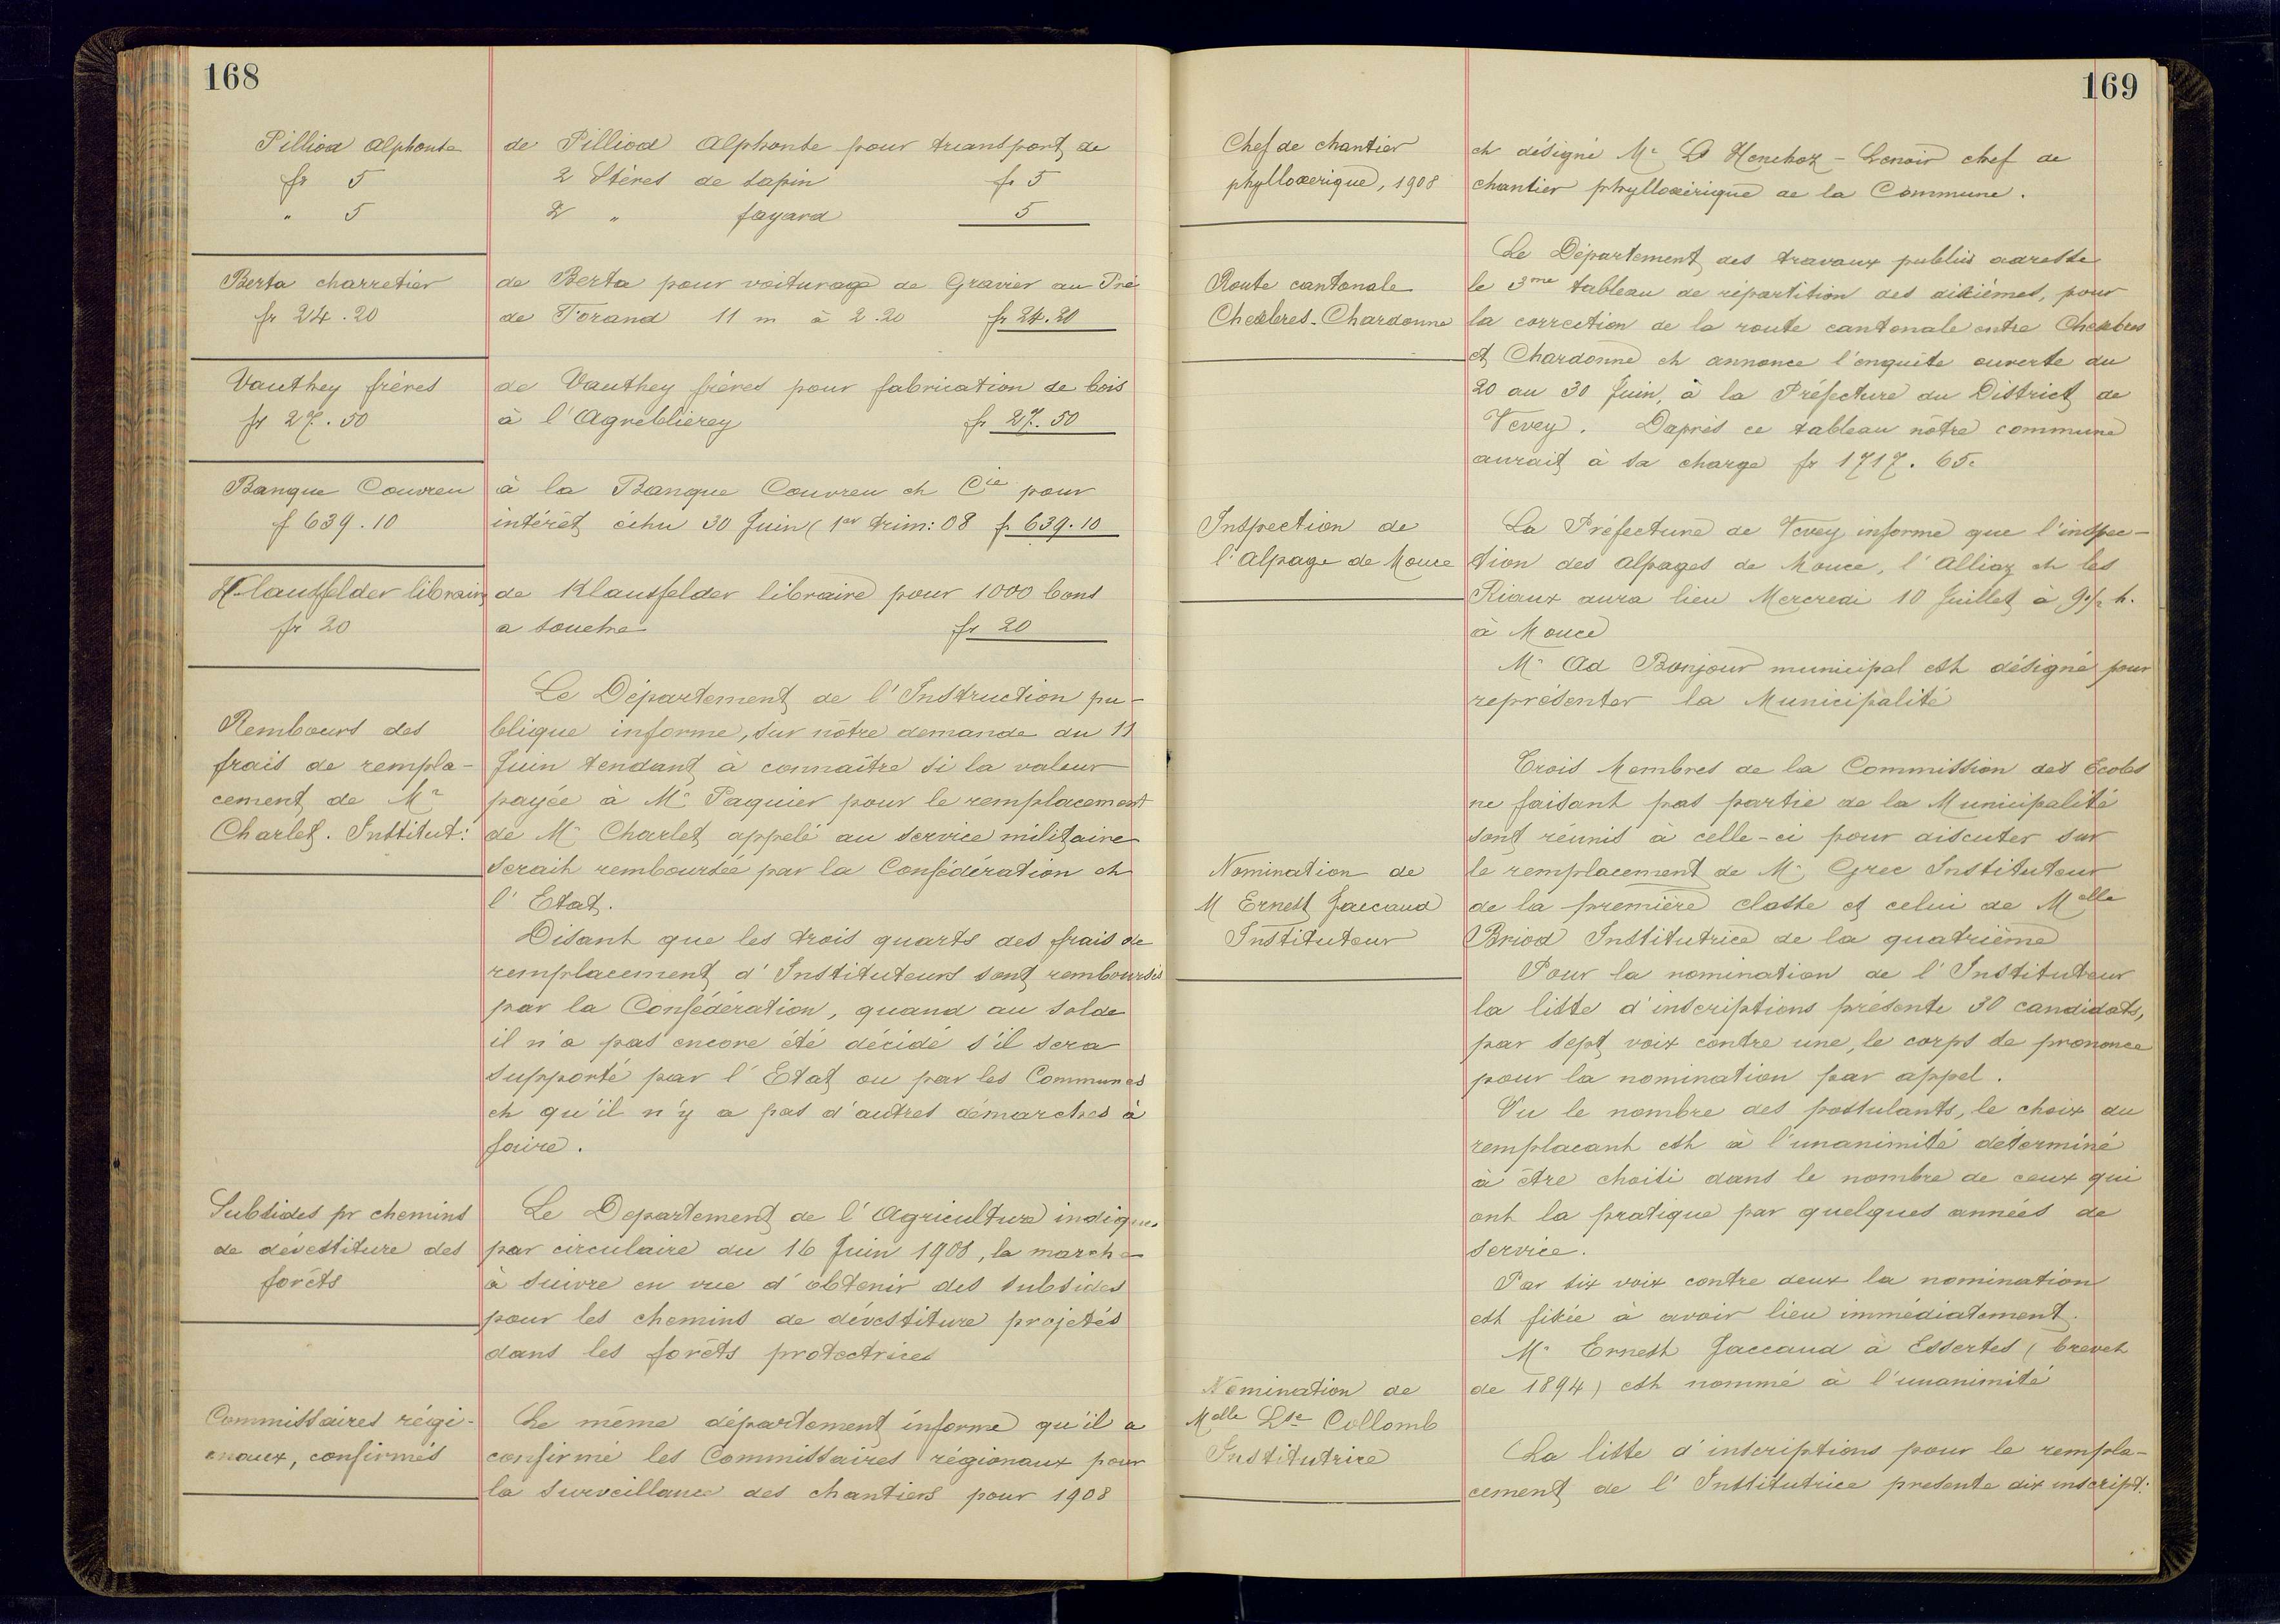 168
Pilliod Alphonse
fr 5
" 5
de Pilliod Alphonse pour transport de
2 Stères de sapin fr 5
2 " fayard 5
Berta charretier
fr 24.20
de Berta pour voiturage de Gravier au Pré
de Torand 11 m à 2.20 fr 24.20
Vauthey frères
fr 27.50
de Vauthey frères pour fabrication de bois
à l'Agreblierey fr 27.50
Banque Couvreu
f 639.10
à la Banque Couvreu et Cie pour
intérêt échu 30 Juin (1er trim: 08 fr 639.10
Klausfelder libraire
fr 20
de Klausfelder libraire pour 1000 bons
a souche fr 20
Rembours des
frais de rempla-
cement de Mr
Charlet. Institut:
Le Département de l'Instruction pu-
blique informe, sur nôtre demande du 11
Juin tendant à connaître si la valeur
payée à Mr Paquier pour le remplacement
de Mr Charlet appelé au service militaire
serait remboursée par la Confédération et
l'Etat.
Disant que les trois quarts des frais de
remplacement d'Instituteurs sont remboursés
par la Confédération, quand au solde
il n'a pas encore été décidé s'il sera
supporté par l'Etat ou par les Communes
et qu'il n'y a pas d'autres démarches à
faire.
Subsides pr chemins
de dévestiture des
forêts
Le Departement de l'Agriculture indique
par circulaire du 16 Juin 1908, la marche
à suivre en vue d'obtenir des subsides
pour les chemins de dévestiture projetés
dans les forêts protectrices
Commissaires régi-
onaux, confirmés
Le même département informe qu'il a
confirmé les Commissaires régionaux pour
la surveillance des chantiers pour 1908
169
Chef de chantier
phylloxerique, 1908
et désigné Mr Ls Henchoz-Lenoir chef de
chantier phylloxérique de la Commune.
Route cantonale
Chexbres-Chardonne
Le Département des travaux publics adresse
le 3me tableau de répartition des dixièmes, pour
la correction de la route cantonale entre Chexbres
et Chardonne et annonce l'enquête ouverte du
20 au 30 Juin, à la Préfecture du District de
Vevey. Daprès ce tableau nôtre commune
aurait à sa charge fr 1717.65.
Inspection de
l'Alpage de Mouce
La Préfecture de Vevey informe que l'inspec-
tion des Alpages de Mouce, l'Alliaz et les
Riaux aura lieu Mercredi 10 Juillet à 9½ h.
à Mouce
Mr Ad Bonjour municipal est désigné pour
représenter la Municipalité
Nomination de
M Ernest Jaccaud
Instituteur
Trois Membres de la Commission des Ecoles
ne faisant pas partie de la Municipalité
sont réunis à celle-ci pour discuter sur
le remplacement de Mr Grec Instituteur
de la première classe et celui de Melle
Briod Institutrice de la quatrième
Pour la nomination de l'Instituteur
la liste d'inscriptions présente 30 candidats,
par sept voix contre une, le corps se prononce
pour la nomination par appel.
Vu le nombre des postulants, le choix du
remplacant est à l'unanimité déterminé
à être choisi dans le nombre de ceux qui
ont la pratique par quelques années de
service.
Par six voix contre deux la nomination
est fixée à avoir lieu immédiatement.
Mr Ernest Jaccaud à Essertes (brevet
de 1894) est nommé à l'unanimité
Nomination de
Melle Lse Collomb
Institutrice
La liste d'inscriptions pour le rempla-
cement de l'Institutrice presente dix inscript: